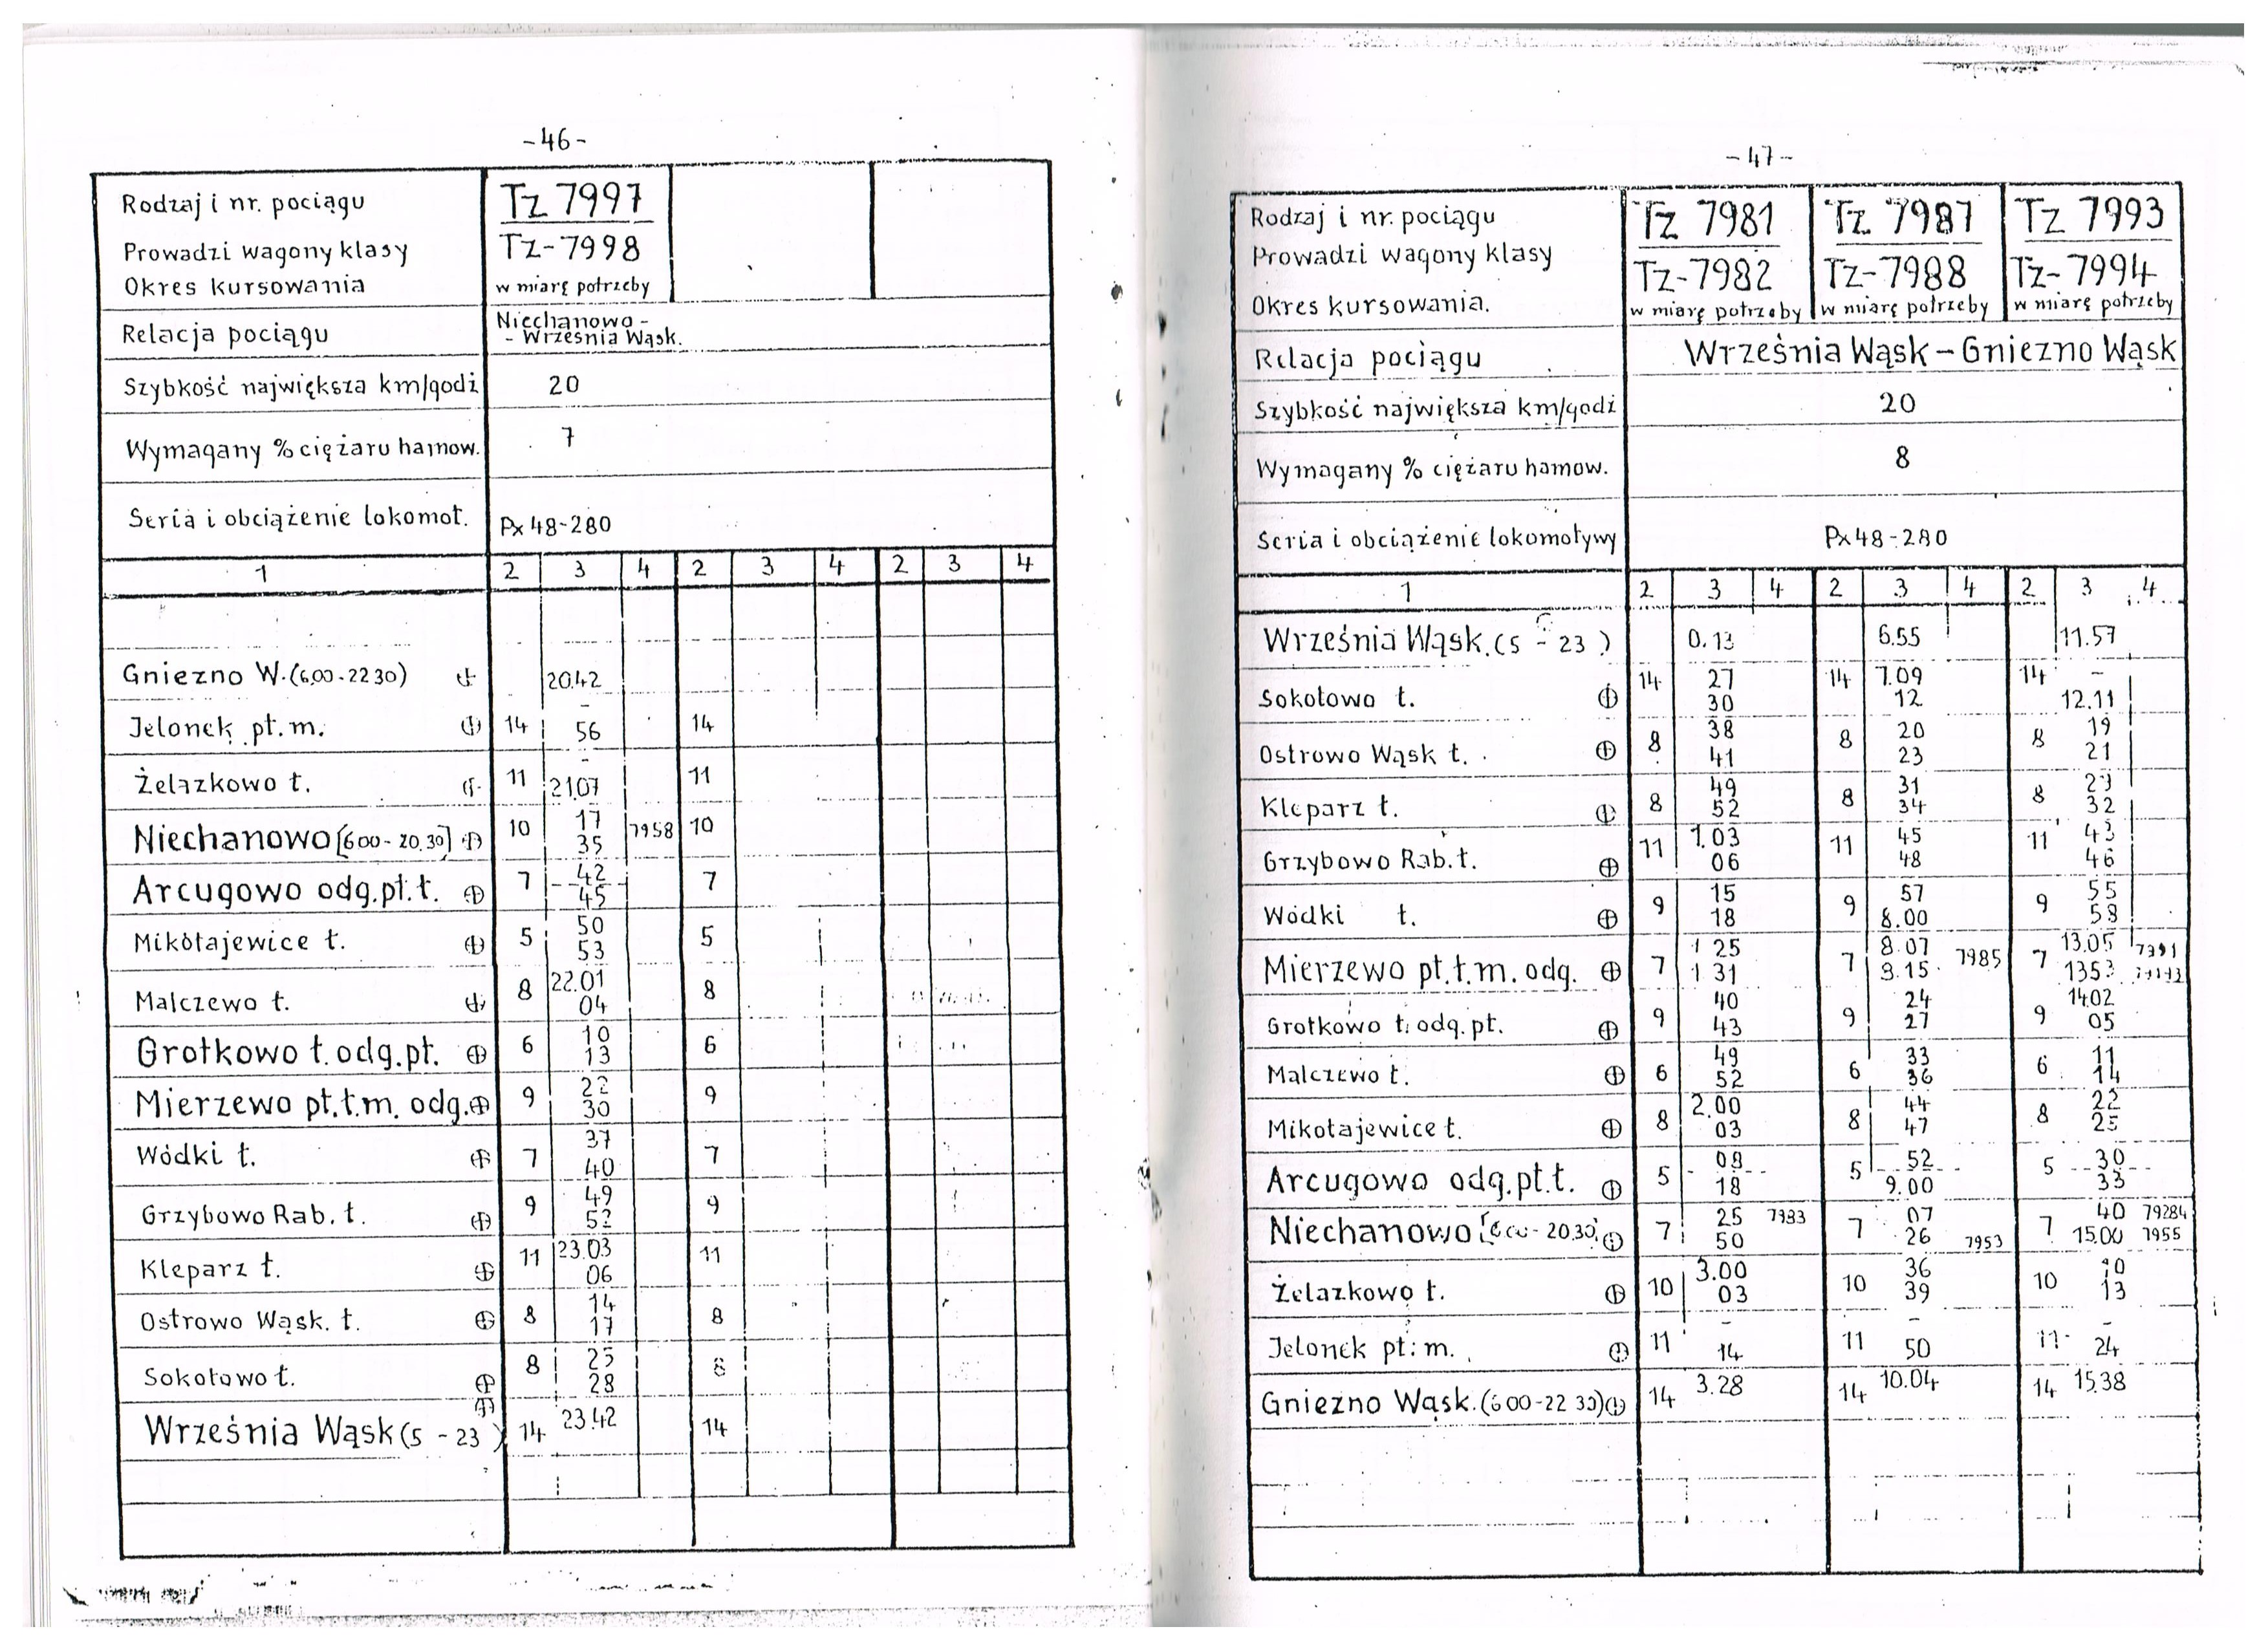 -46-
Rodzaj i nr. pociągu Tz 7997
Prowadzi wagony klasy Tz-7998
Okres kursowania w miarę potrzeby
Relacja pociągu Niechanowo -
- Września Wąsk.
Szybkość największa km/godz 20
Wymagany % ciężaru hamow. 7
Seria i obciążenie lokomot. Px48-280
1 2 3 4 2 3 4 2 3 4
Gniezno W.(6,00-22 30) 20.42
-
Jelonek pt.m. 14 56 14
-
Żelazkowo ł. 11 21.07 11
Niechanowo [6 00-20.30] 10 17 7958 10
35
Arcugowo odg.pt.ł. 7 42 7
45
Mikołajewice ł. 5 50 5
53
Malczewo ł. 8 22.01 8
04
Grotkowo ł.odg.pt. 6 10 6
13
Mierzewo pt.ł.m. odg. 9 22 9
30
Wódki ł. 7 37 7
40
Grzybowo Rab. ł. 9 49 9
52
Kleparz ł. 11 23.03 11
06
Ostrowo Wąsk. ł. 8 14 8
17
Sokołowo ł. 8 25 8
28
Września Wąsk (5 - 23) 14 23.42 14
-47-
Rodzaj i nr. pociągu Tz 7981 Tz 7987 Tz 7993
Prowadzi wagony klasy Tz-7982 Tz-7988 Tz-7994
Okres kursowania. w miarę potrzeby w miarę potrzeby w miarę potrzeby
Relacja pociągu Września Wąsk - Gniezno Wąsk
Szybkość największa km/godz 20
Wymagany % ciężaru hamow. 8
Seria i obciążenie lokomotywy Px48-280
1 2 3 4 2 3 4 2 3 4
Września Wąsk.(5 - 23) 0.13 6.55 11.57
Sokołowo ł. 14 27 14 7.09 14 -
30 12 12.11
Ostrowo Wąsk ł. 8 38 8 20 8 19
41 23 21
Kleparz ł. 8 49 8 31 8 29
52 34 32
Grzybowo Rab.ł. 11 1.03 11 45 11 43
06 48 46
Wódki ł. 9 15 9 57 9 55
18 8.00 58
Mierzewo pt.ł.m. odg. 7 1 25 7 8.07 7985 7 13.05 7991
1 31 8.15 1353
Grotkowo ł.odg.pt. 9 40 9 24 9 1402
43 27 05
Malczewo ł. 6 49 6 33 6 11
52 36 14
Mikołajewice ł. 8 2.00 8 44 8 22
03 47 25
Arcugowo odg.pt.ł. 5 08 5 52 5 30
18 9.00 33
Niechanowo [6 00-20.30] 7 25 7983 7 07 7 40 79284
50 26 7953 15.00 7955
Żelazkowo ł. 10 3.00 10 36 10 10
03 39 13
Jelonek pt.m. 11 - 11 - 11 -
14 50 24
Gniezno Wąsk.(6 00-22 30) 14 3.28 14 10.04 14 15.38